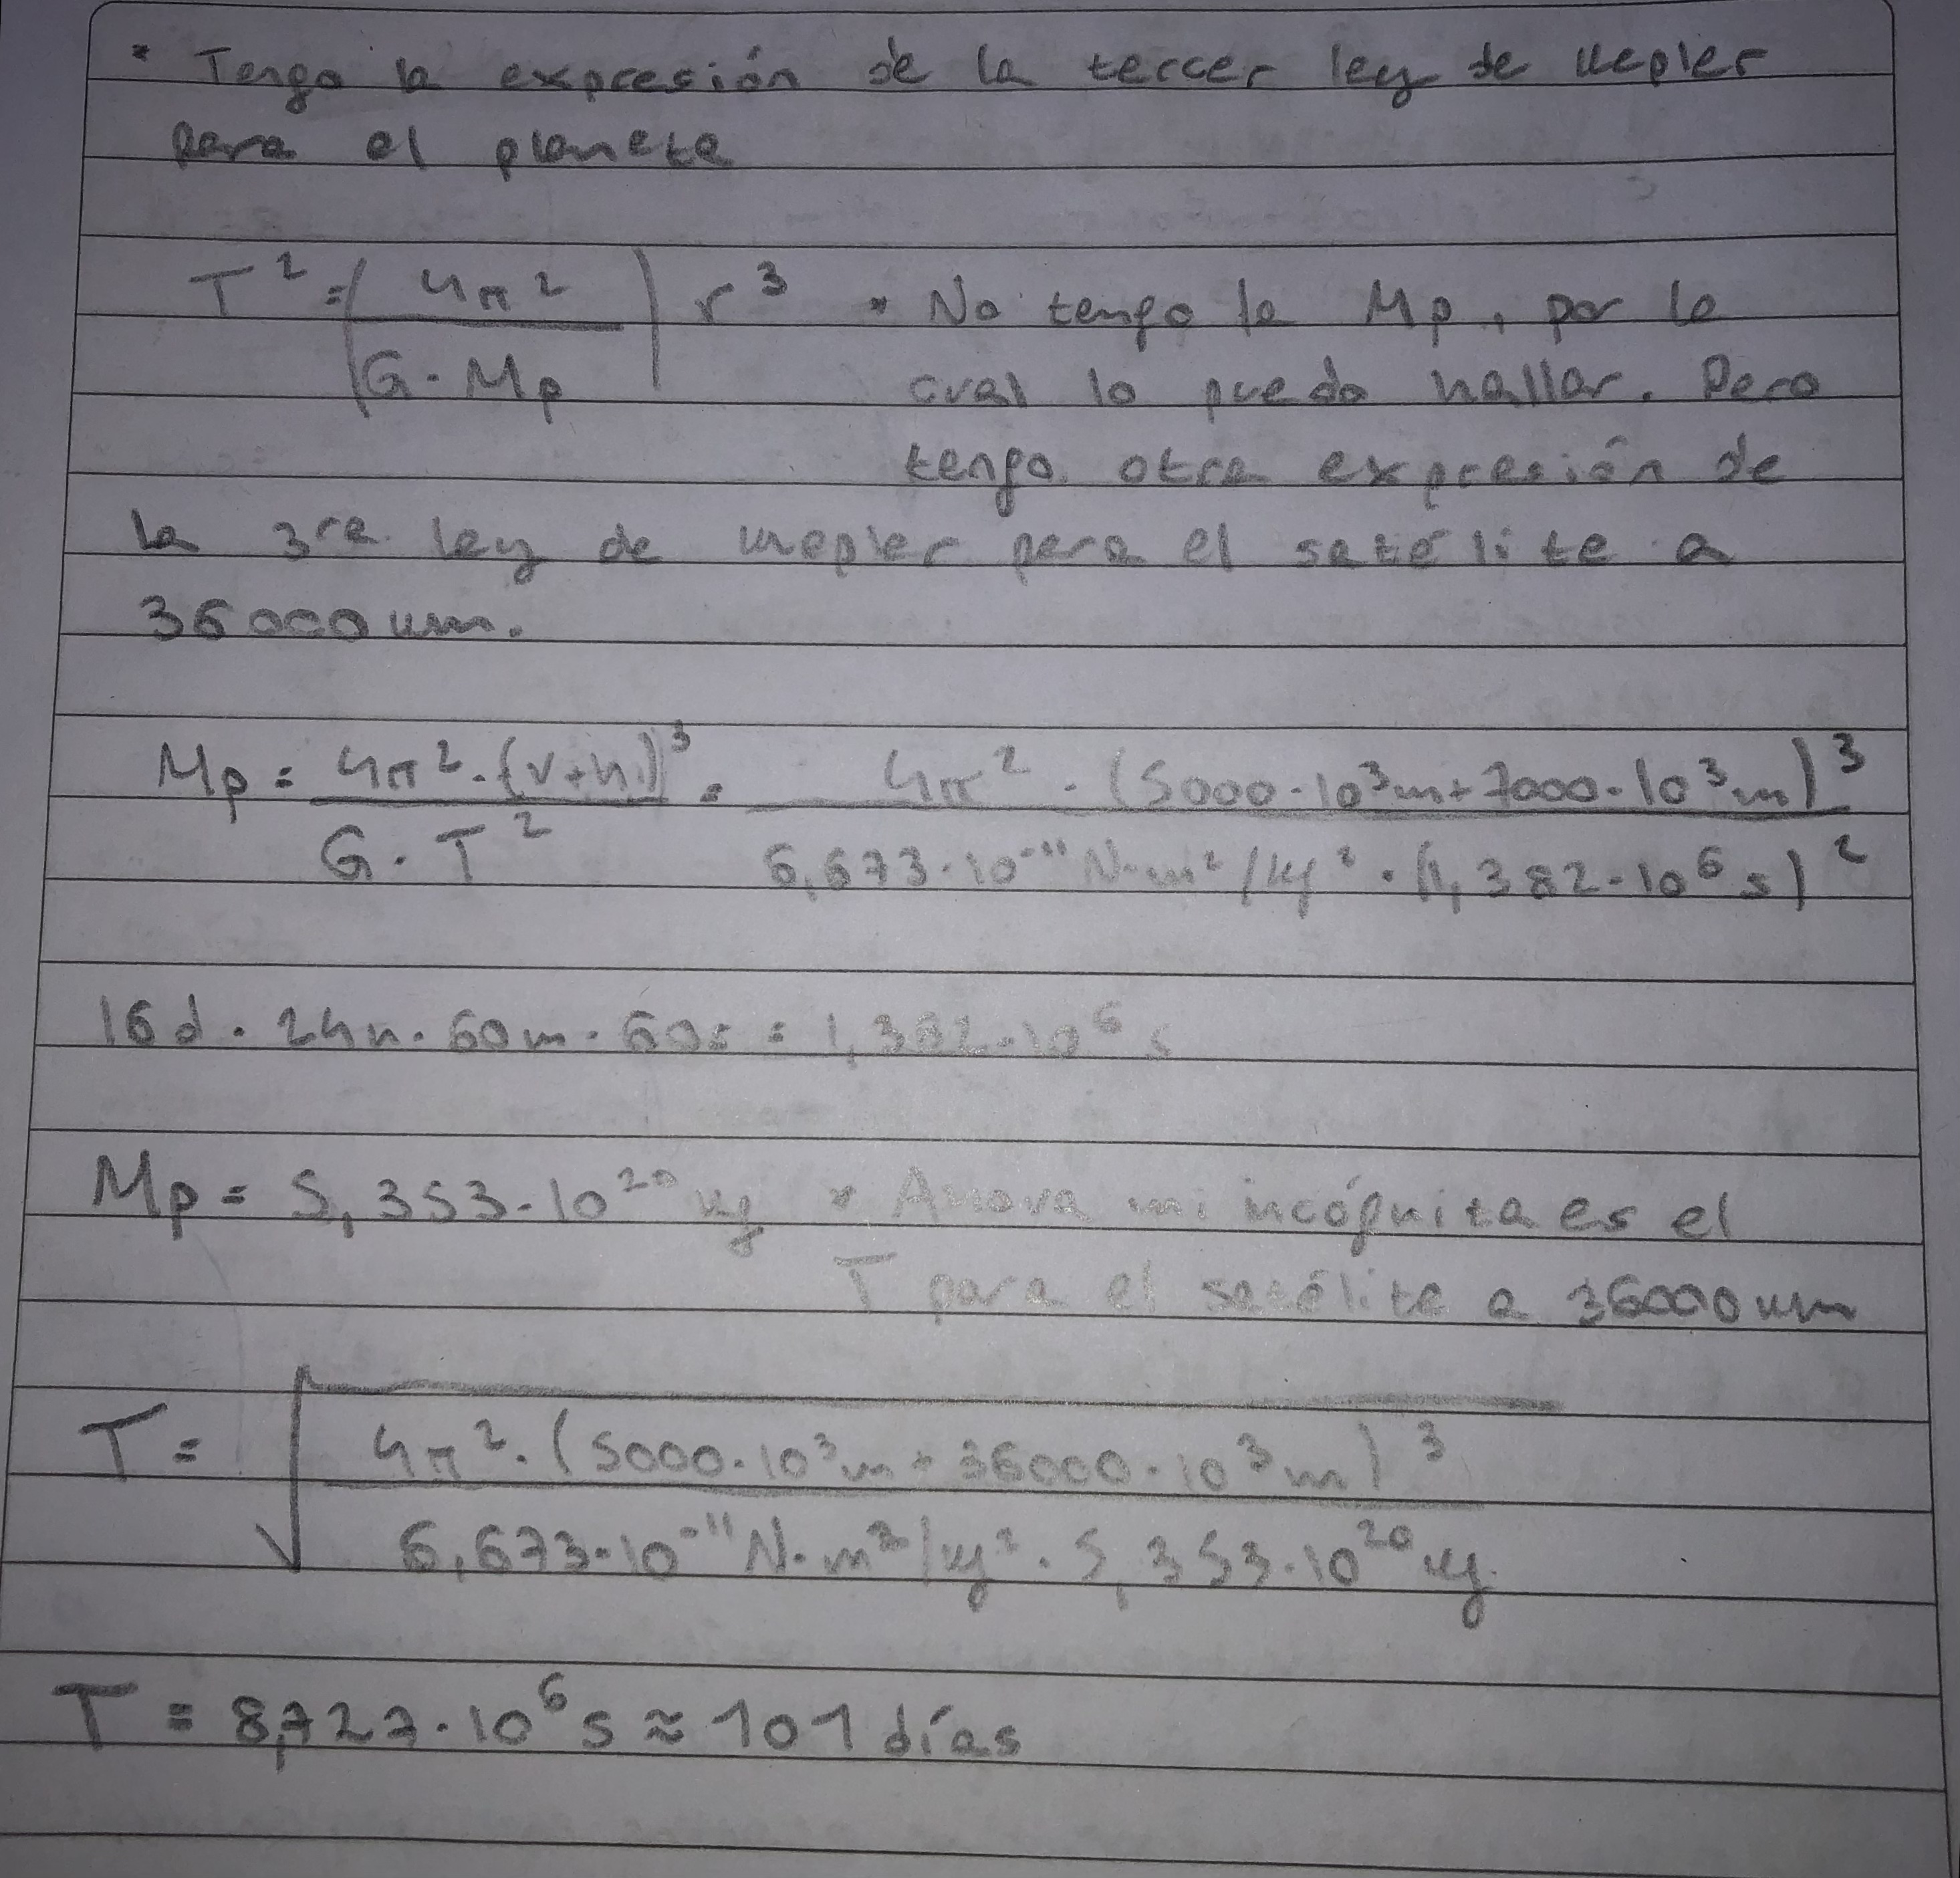 * Tengo la expresión de la tercer ley de Kepler
para el planeta
T² = (4π² / G · Mp) r³ * No tengo la Mp, por lo
cual lo puedo hallar. Pero
tengo otra expresión de
la 3ra ley de Kepler para el satélite a
36000 km.
Mp = 4π² · (r+h)³ / G · T² = 4π² · (5000 · 10³ m + 7000 · 10³ m)³ / 6,673 · 10⁻¹¹ N · m² / kg² · (1,382 · 10⁶ s)²
16d · 24h · 60m · 60s = 1,382 · 10⁶ s
Mp = 5,353 · 10²⁰ kg * Ahora mi incógnita es el
T para el satélite a 36000 km
T = √(4π² · (5000 · 10³ m + 36000 · 10³ m)³ / 6,673 · 10⁻¹¹ N · m² / kg² · 5,353 · 10²⁰ kg)
T = 8,727 · 10⁶ s ≈ 101 días